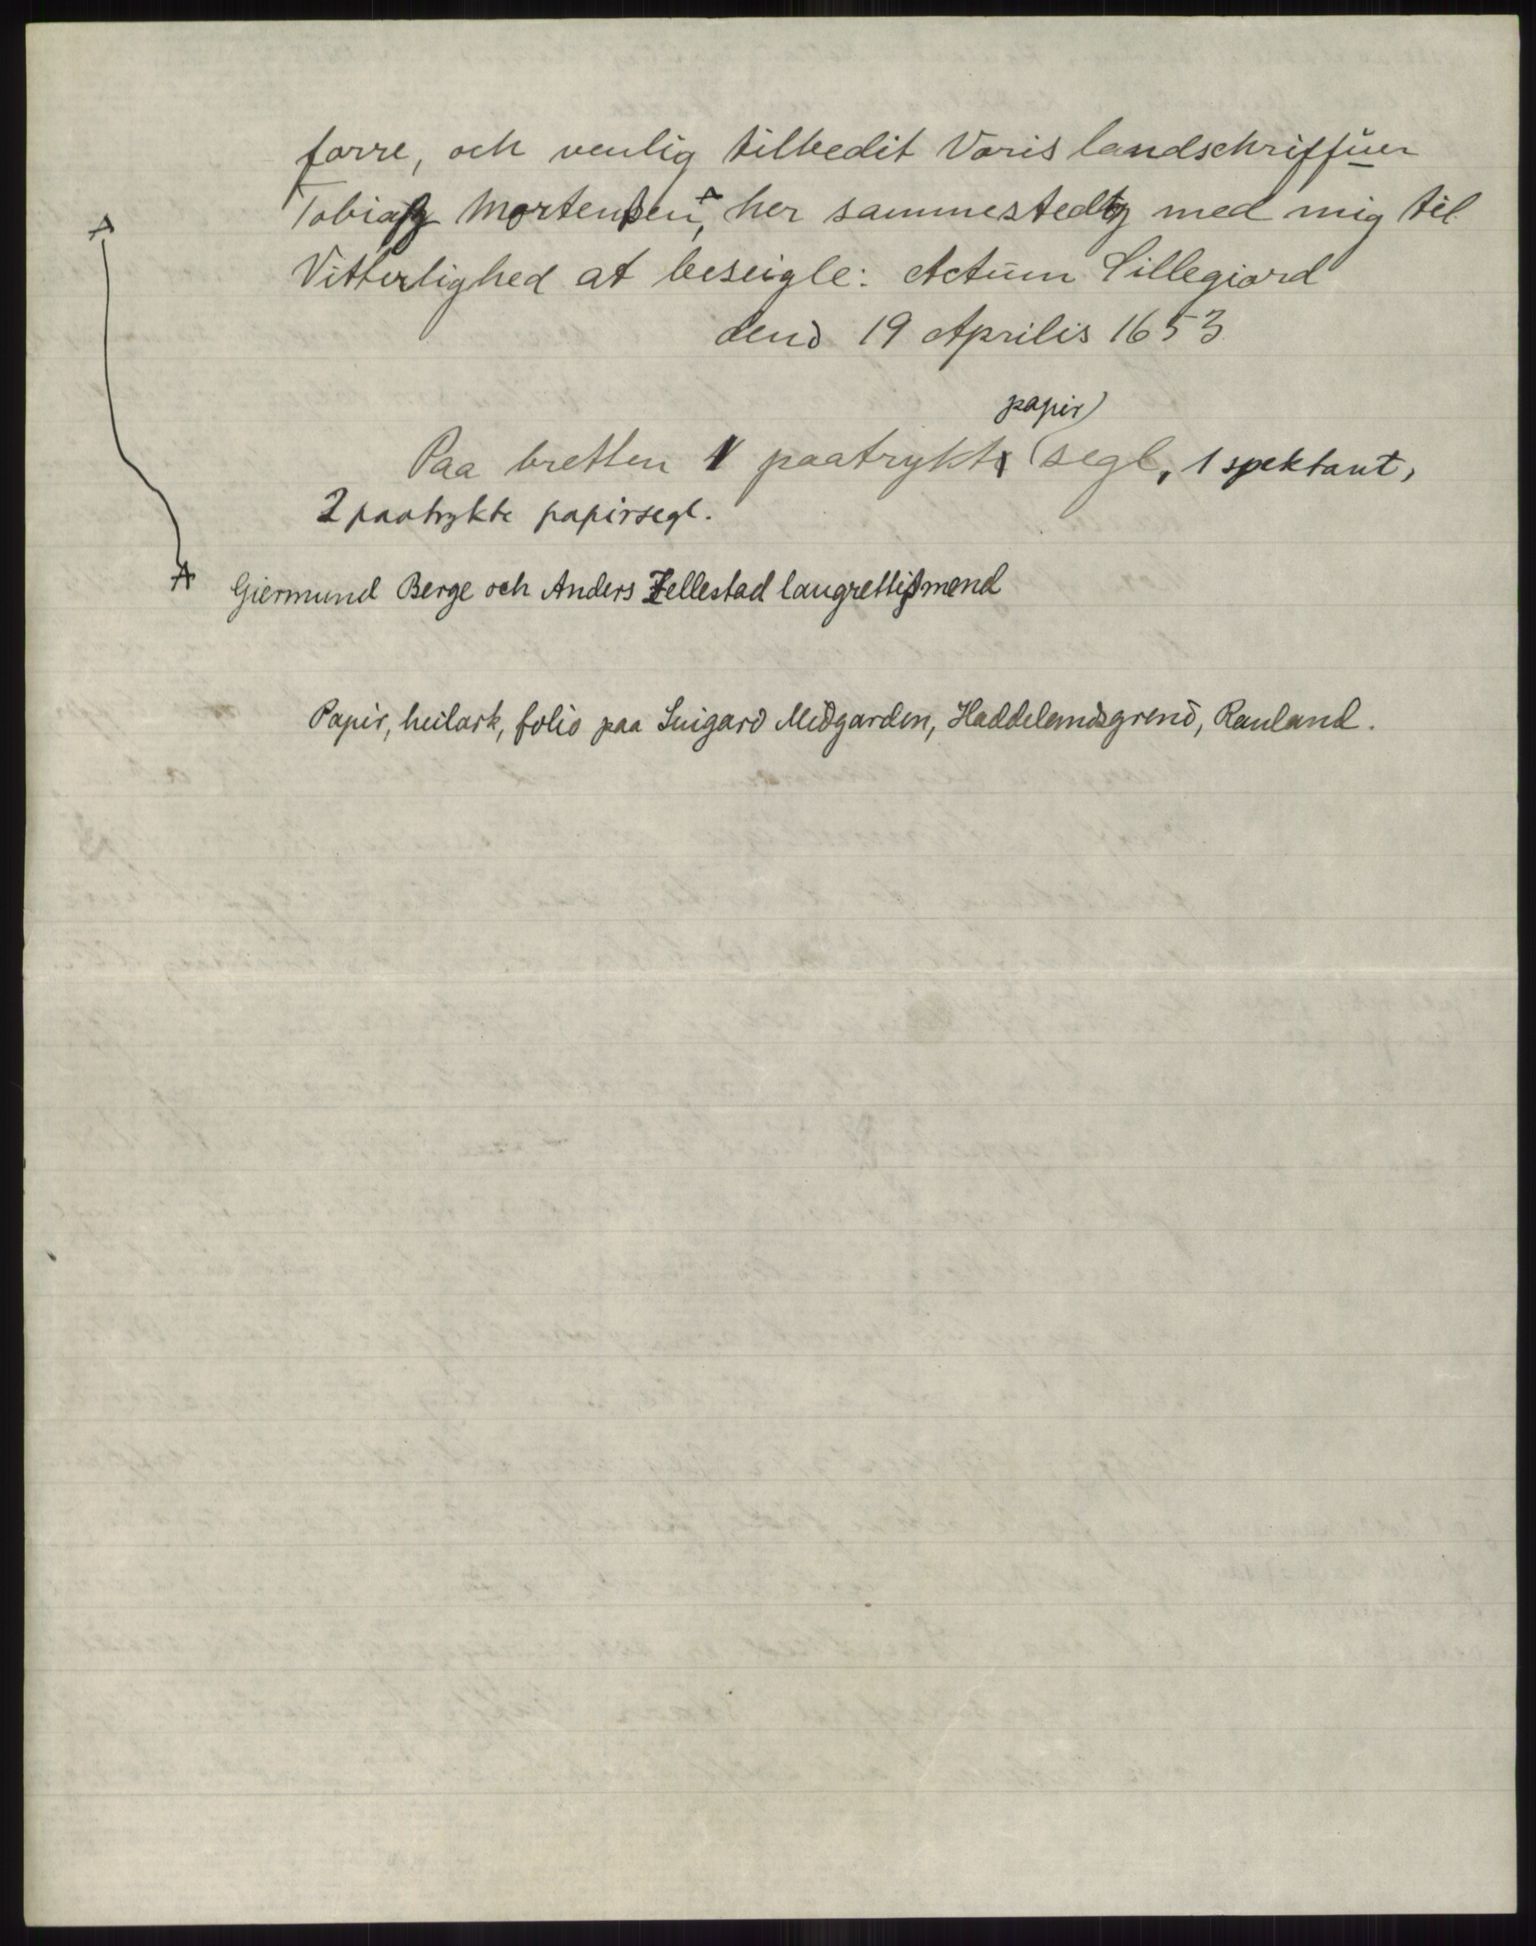 forre, och venlig tilbedit Voris landschriffuer
Tobiaß Mortenßen, her sammestedtz med mig til
Vitterlighed at beseigle: Actum Lillegiord
dend 19 Aprilis 1653
papir)
Paa bretten 1 paatrykt (segl, 1 spektant,
2 paatrykte papirsegl.
Giermund Berge och Anders Zellestad laugrettißmend
Papir, heilark, folio paa Snigard Midgarden, Haddelandsgrend, Rauland.